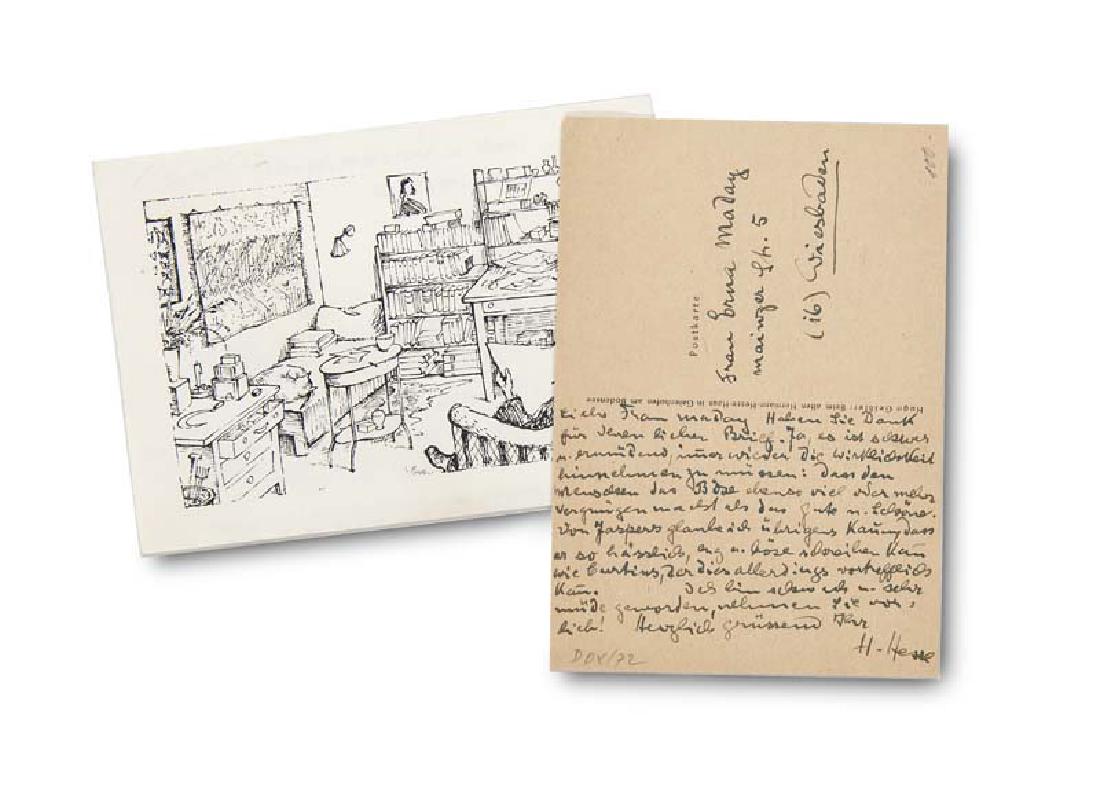 100.-
Postkarte
Frau Erna Maday
Mainzer Str. 5
(16) Wiesbaden
Hugo Geißler: Beim alten Hermann-Hesse-Haus in Gaienhofen am Bodensee
Liebe Frau Maday Haben Sie Dank
für Ihren lieben Brief. Ja, es ist schwer
u. ermüdend, immer wieder die Wirklichkeit
hinnehmen zu müssen: dass den
Menschen das Böse ebenso viel oder mehr
Vergnügen macht als das Gute u. Schöne.
Von Jaspers glaube ich übrigens kaum, dass
er so hässlich, eng u. böse schreiben kann
wie Curtius, der dies allerdings vortrefflich
kann. Ich bin schwach u. sehr
müde geworden, nehmen Sie vor-
lieb! Herzlich grüssend Ihr
H. Hesse